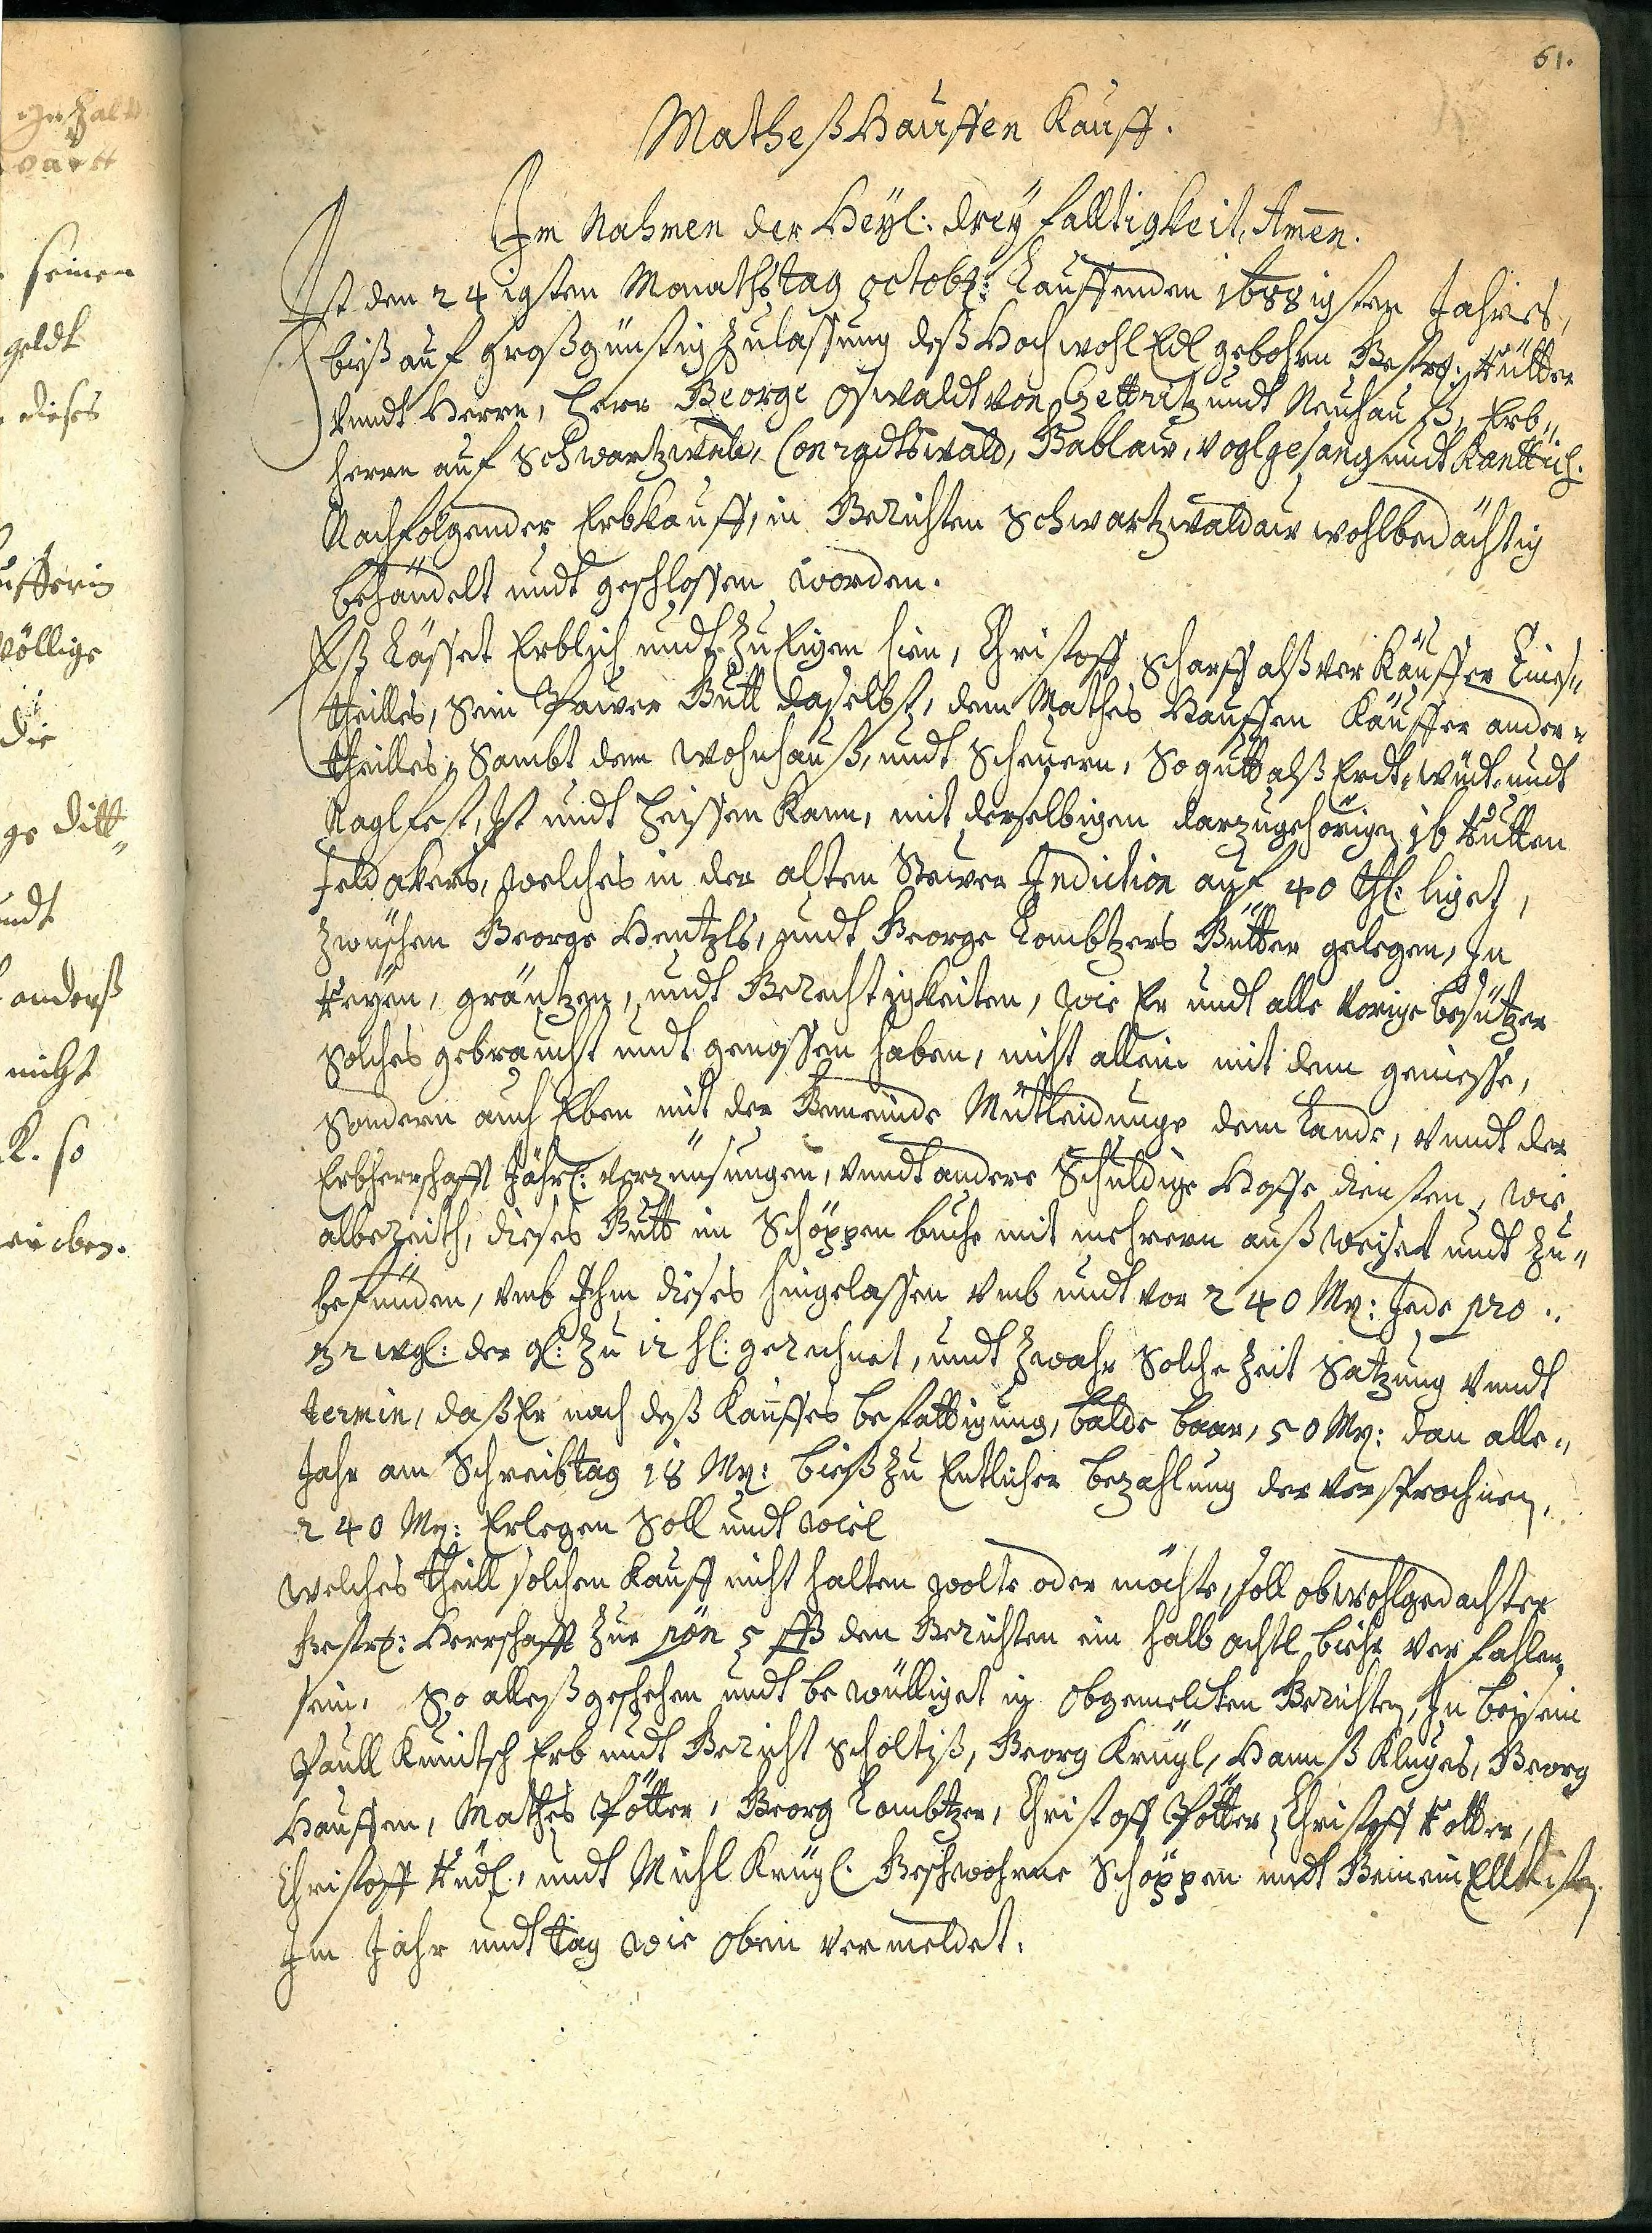 61.
Matheß Hauffen Kauff.
Im Nahmen der Heyl: dreyfalltigkeit, Amen.
Ist den 24 igsten Monathstag octobr: Lauffenden 1688 igsten Jahres,
biß auf großgünstig Zulassung deß Hoch wohl Edl gebohrn Gestr: Rütter
Vnndt Herrn, Herr George Oswaldt von Czettritz undt Neuhauß, Erb„
herrn auf Schwartzwaldau, Conradtswald, Gablaw, Voglgesang undt
Nachfolgender Erbkauff, in Gerichten Schwartzwaldaw wohlbedächtig
behandelt undt geschlossen worden.
Eß Lässet Erblich undt Zu Eigen hien, Christoff Scharff alß Verkäuffer Eines„
theilles, Sein Pawer Gutt daselbst, dem Mathes Hauffen Käuffer ander„
theilles, Sambt dem Wohnhauß, undt Scheuern, So gutt alß Erdt, Wiedt, undt
Naglfest, Ist undt Heissen Kann, mit derselbigen darzugehörigen 16 Rutten
Feld akers, welches in der alten Stewer Indiction auf 40 Thl: liget,
Zwischen George Hentzls, undt George Lombtzers Gütter gelegen, In
Reyen, gräntzen, undt Gerechtigkeiten, wie Er undt alle Vorige besützer
Solches gebraucht undt genossen haben, nicht allein mit dem genosse,
Sondern auch Eben mit der Gemeinde Mütleidunge dem Lande, Vnndt der
Erbherrschafft Jährl: Verzünsungen, Vnndt andere Schuldige Hoffe diensten, wie
albereith, dieses Gutt im Schöppen buche mit mehrern außweiset undt Zu„
befünden, Vmb Ihm dieses hingelassen Vmb undt vor 240 Mr: Jede pro„
32 wgl: der gl: Zu 12 hl: gerechnet, undt Zwahr Solche Zeit Satzung Vnndt
termin, daß Er nach deß Kauffes bestättigung, balde baar, 50 Mr: dan alle„
Jahr am Schreibtag 18 Mr: bieß Zu Entlicher bezahlung der Versprochnen
240 Mr: Erlegen Soll undt wiel
Welches theill solchen Kauff nicht halten wolte oder möchte, soll obwohlgedachter
Gestr: Herrschafft Zur pön 5 ßß den Gerichten ein halb achtl biehr Verfahlen
sein. So alleß geschehen undt bewülliget in obgemelten Gerichten, In beisein
Paull Kunitsch Erb undt Gericht Scholtzß, Georg Krügl, Hannß Kluges, Georg
Hauffen, Mathes Pötter, Georg Lombtzer, Christoff Pötter, Christoff Rotter,
Christoff Rüdl, undt Michl Krügl. Geschwohrne Schöppen undt Gemein Elltisten
Im Jahr undt tag wie oben vermeldet.
seinen
geldt
dieses
völlige
die
ge ditt„
undt
anderß
nicht
K. so